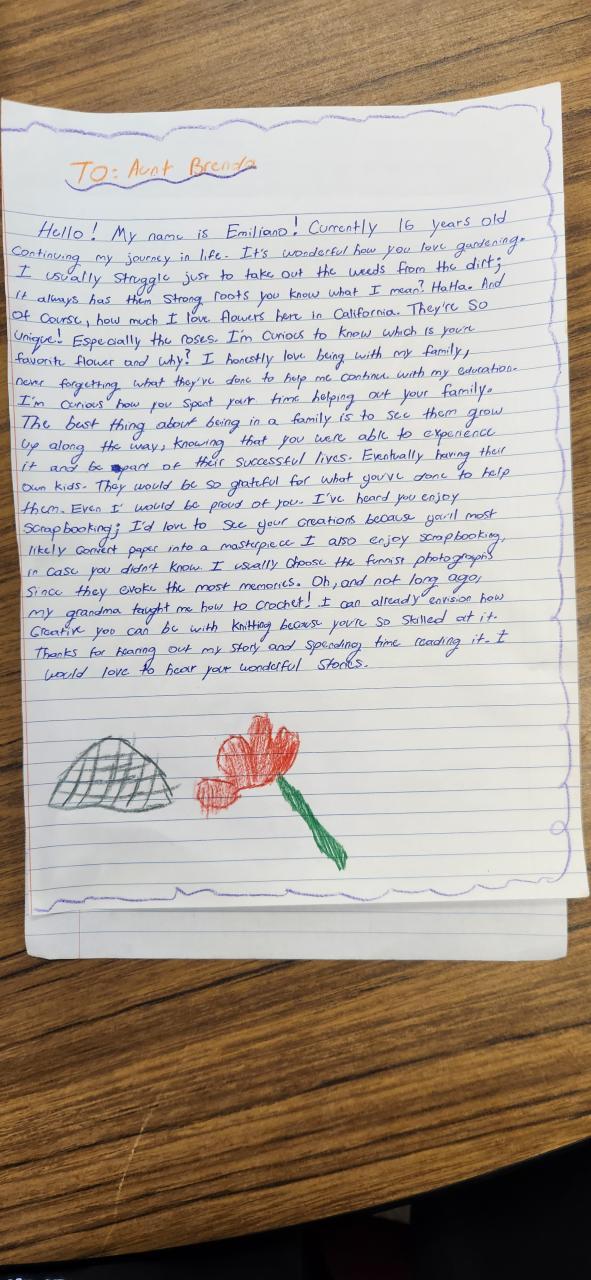 TO: Aunt Brenda
Hello! My name is Emiliano! Currently 16 years old
continuing my journey in life. It's wonderful how you love gardening.
I usually struggle just to take out the weeds from the dirt;
it always has them strong roots you know what I mean? HaHa. And
of course, how much I love flowers here in California. They're so
unique! Especially the roses. I'm curious to know which is you're
favorite flower and why? I honestly love being with my family,
never forgetting what they've done to help me continue with my education.
I'm curious how you spent your time helping out your family.
The best thing about being in a family is to see them grow
up along the way, knowing that you were able to experience
it and be part of their successful lives. Eventually having their
own kids. They would be so grateful for what you've done to help
them. Even I would be proud of you. I've heard you enjoy
scrapbooking; I'd love to see your creations because you'll most
likely convert paper into a masterpiece I also enjoy scrapbooking,
in case you didn't know. I usually choose the funnist photographs
since they evoke the most memories. Oh, and not long ago,
my grandma taught me how to crochet! I can already envision how
creative you can be with knitting because you're so skilled at it.
Thanks for hearing out my story and spending time reading it. I
would love to hear your wonderful stories.